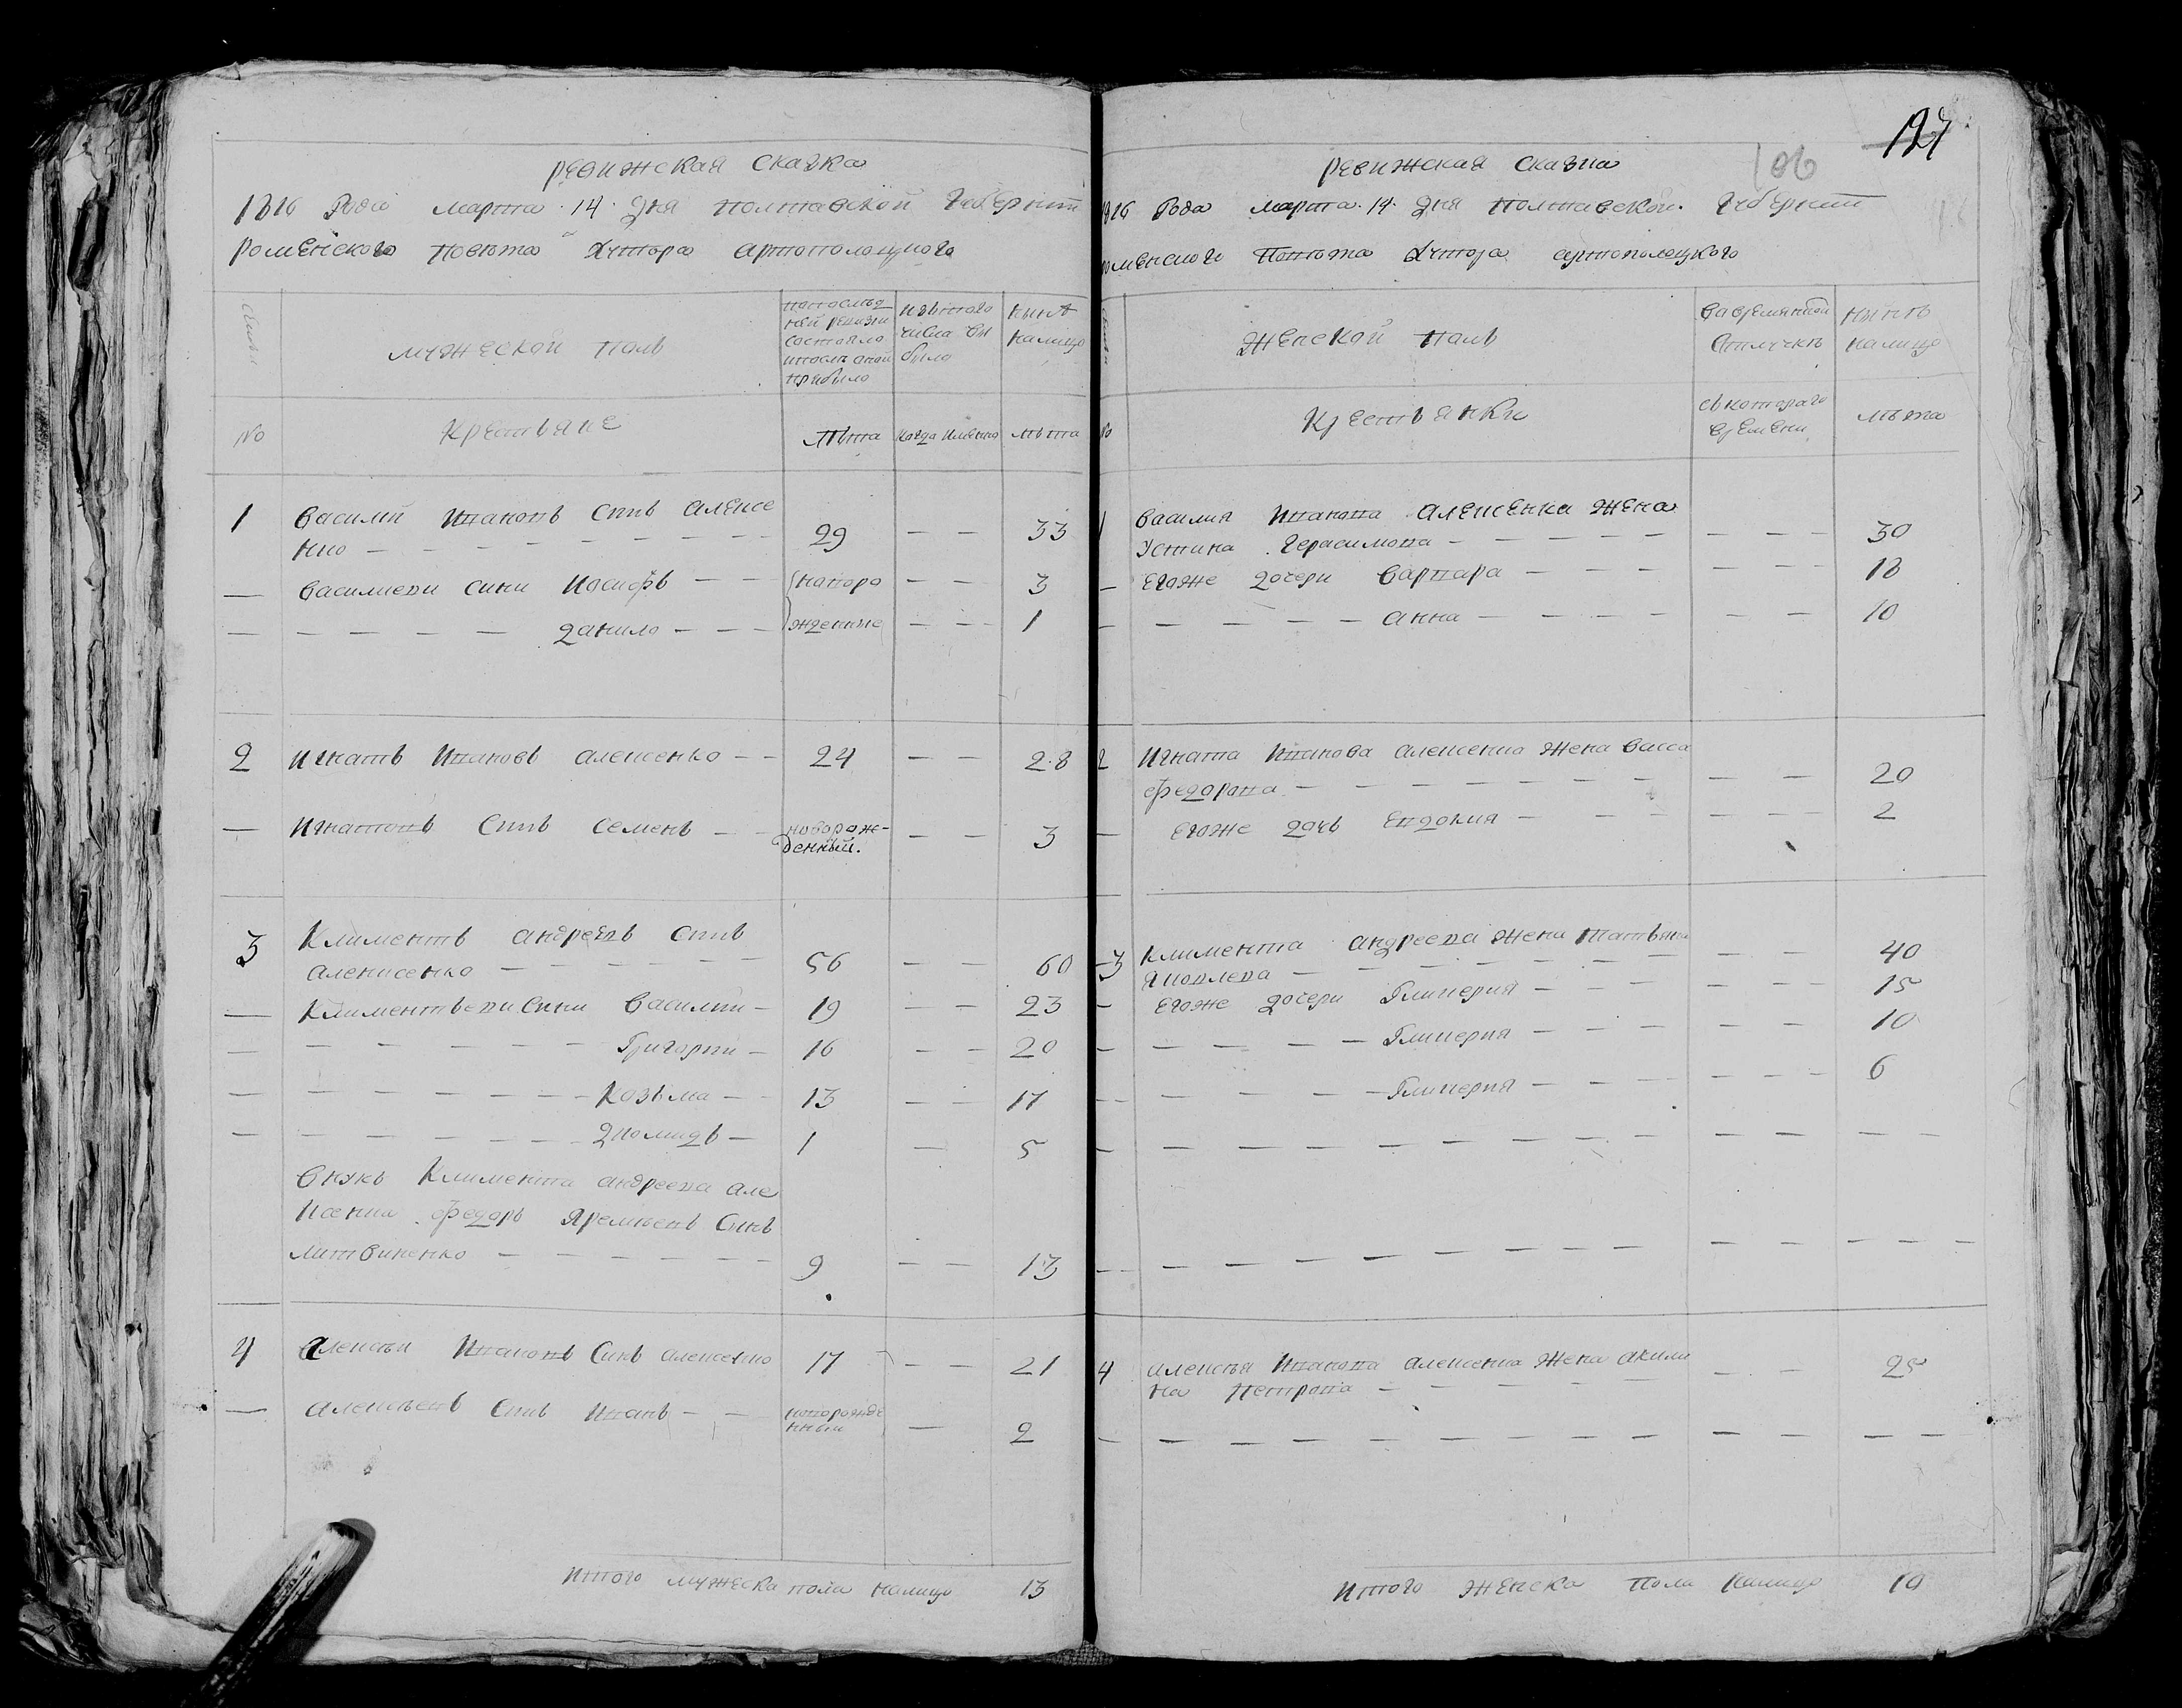 Ревижская сказка
1816 Года марта 14 дня Полтавской Губернии
Роменского Повѣта Хутора Артополоцкого
семьи
мужеской полъ
попослѣд
ней ревизи
состояло
ипослѣ оной
прибыло
изътого
числа вы
было
нынѣ
налицо
№
Крестьяне
лѣта
когда имянно
лѣта
1 Василий Ивановъ синъ Алексе
нко — 29 — — 33
— Василиеви сини Иосифъ — — новоро — — 3
— Данило — — — жденние — — 1
2 Игнатъ Ивановъ Алексенко — — 24 — — 28
— Игнатовъ синъ Семенъ — — новорож-
денный. — — 3
3 Климентъ Андреевъ синъ
Алексенко — 56 — — 60
— Климентьеви сини Василий — 19 — — 23
— Григорий — 16 — — 20
— Козьма — — 13 — — 17
— Диомидъ — 1 — 5
Внукъ Климента Андреева Але
ксенка Федоръ Яремѣевъ синъ
Литвиненко — 9 — — 13
4 Алексѣй Ивановъ синъ Алексенко 17 — — 21
— Алексѣевъ синъ Иванъ — — новорожде
нный — 2
Итого мужеска пола налицо 13
127
106
Ревижская сказка
1816 Года марта 14 дня Полтавской Губернии
Роменского Повѣта Хутора Артополоцкого
женской полъ
вовремянной
отлучкѣ
нынѣ
налицо
№
Крестьянки
съкотораго
времени
лѣта
1 Василия Иванова Алексенка жена
Устина Герасимова — — — 30
— Егоже дочери Варвара — — — 18
— Анна — — — 10
2 Игната Иванова Алексенка жена Васса
Федорова — — — 20
— Егоже дочь Евдокия — — — 2
3 Климента Андреева жена Татьяна
Яковлева — — — 40
— Егоже дочери Гликерия — — — 15
— Гликерия — — — 10
— Гликерия — — — 6
4 Алексѣя Иванова Алексенка жена Акили
на Петрова — — — 25
Итого женска пола налицо 10